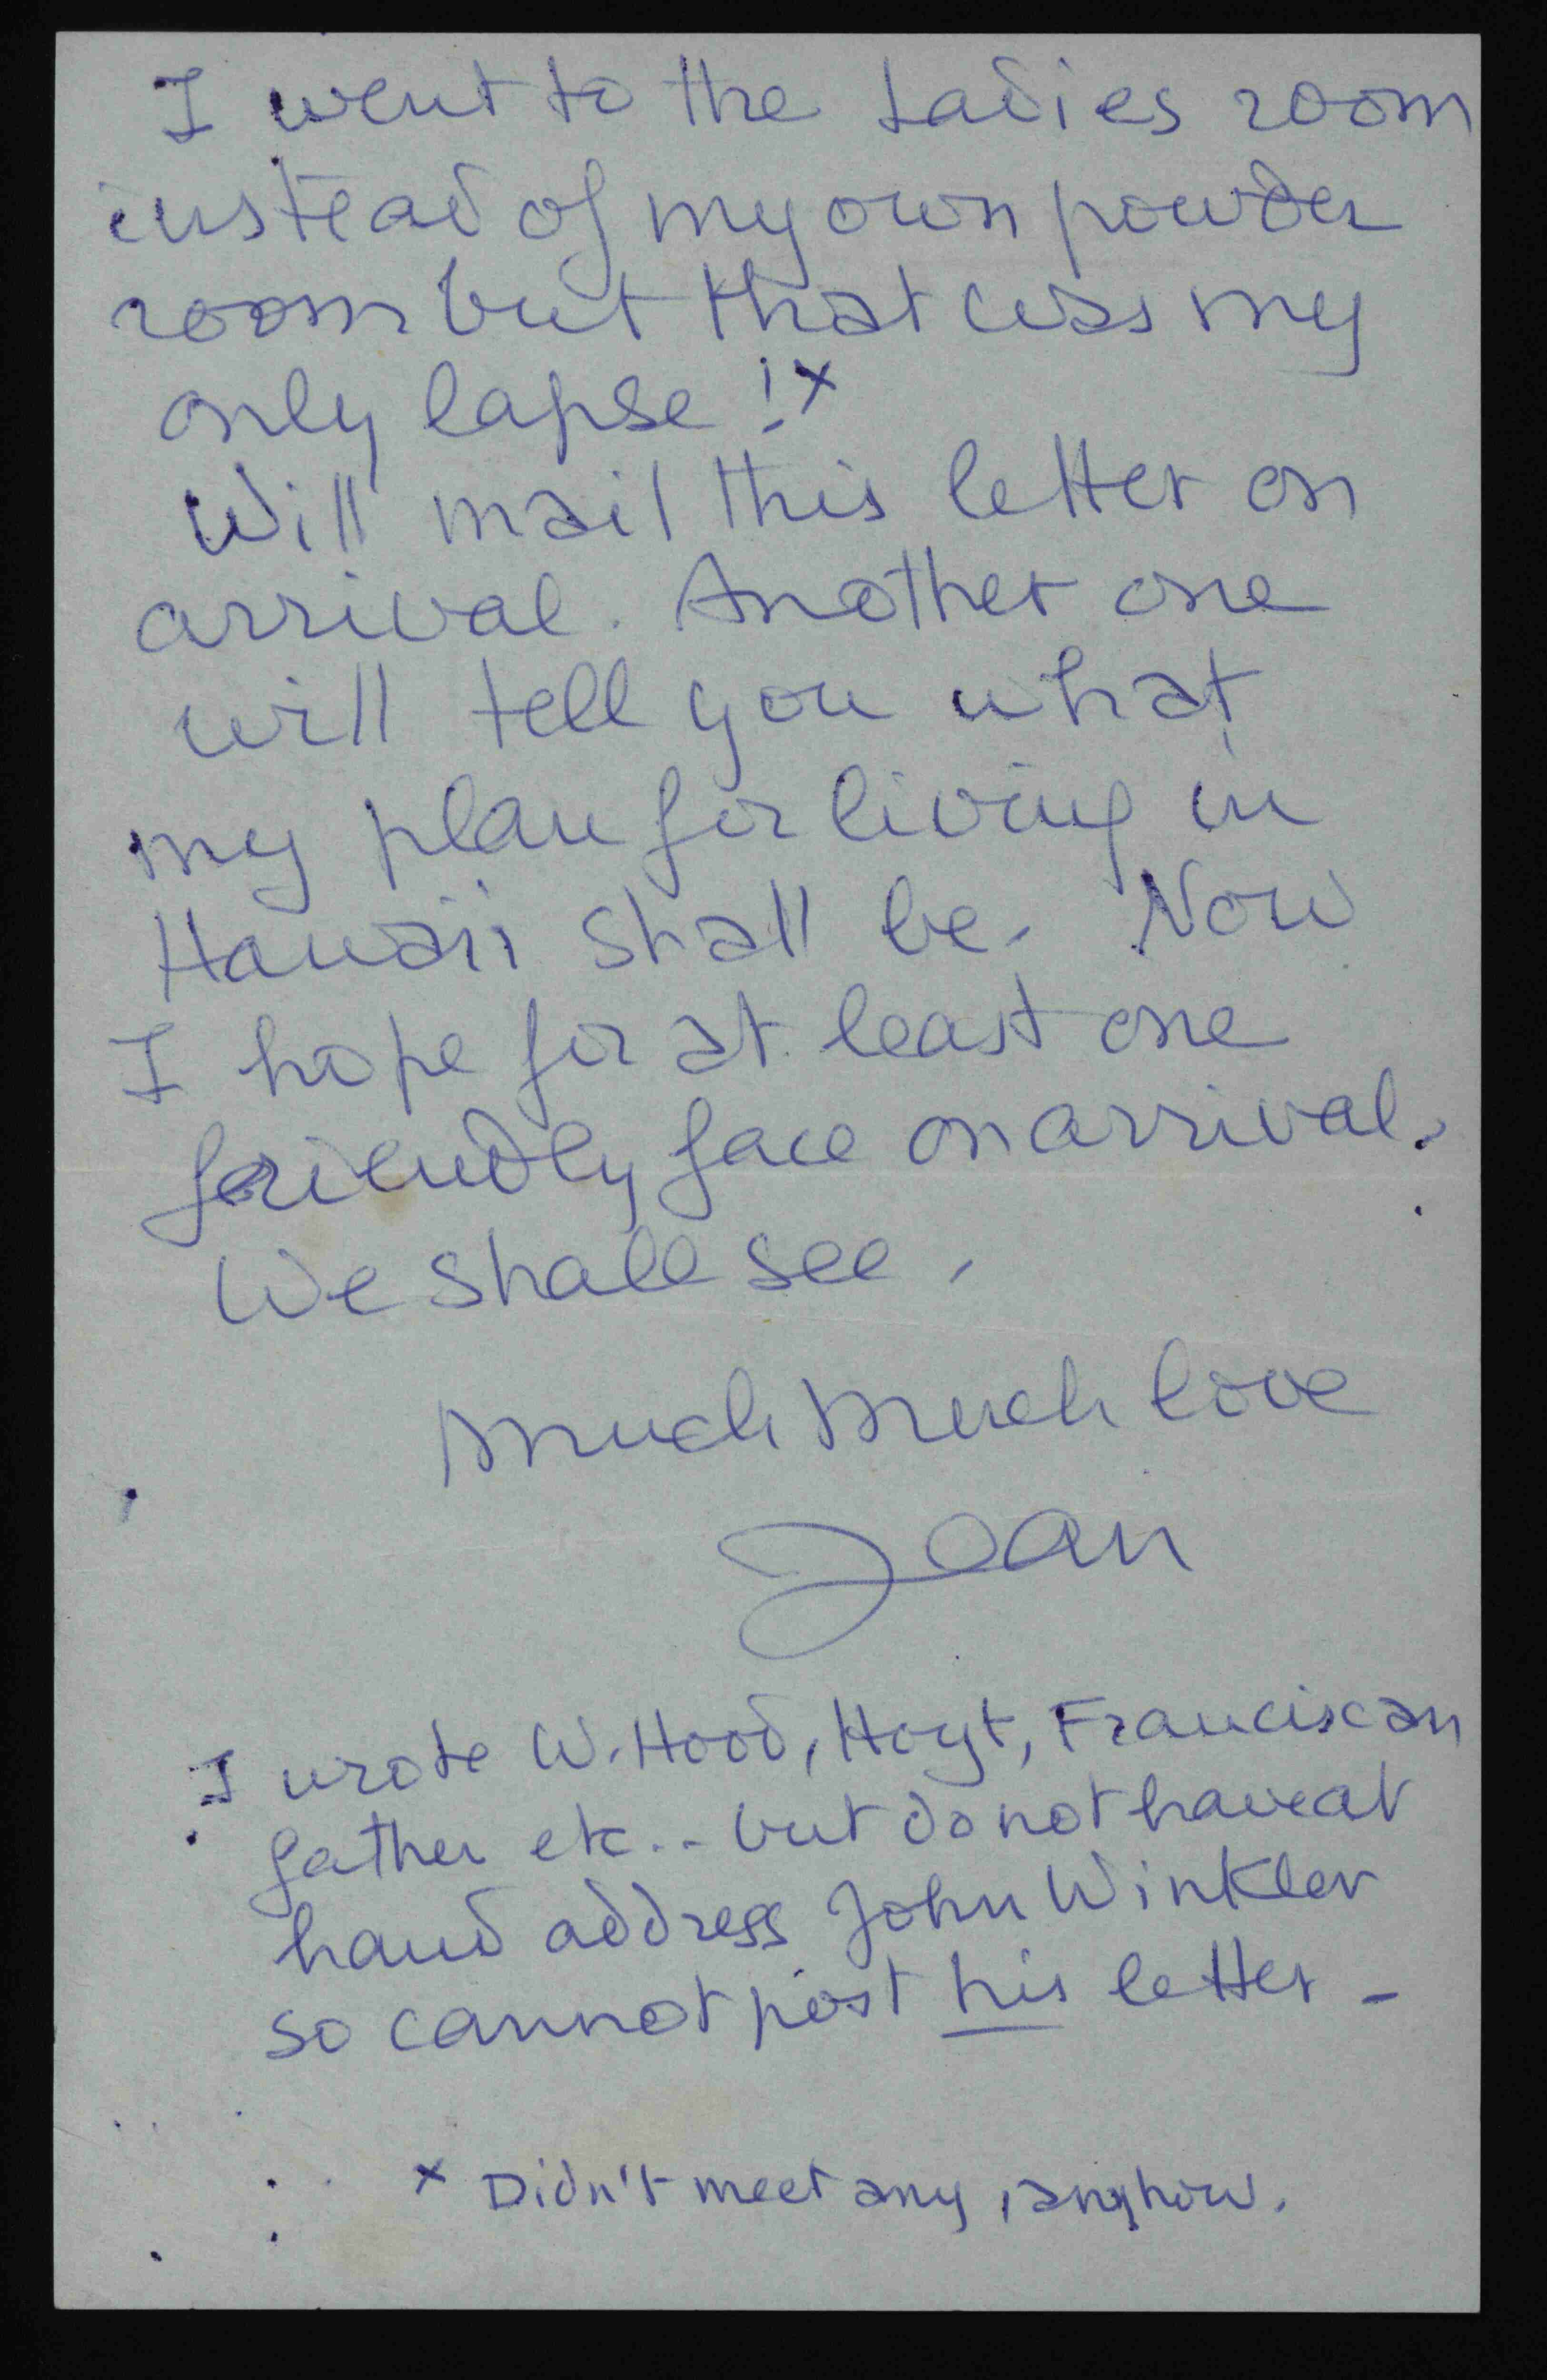 I went to the Ladies room
instead of my own powder
room but that was my
only lapse! x
Will mail this letter on
arrival. Another one
will tell you what
my plan for living in
Hawaii shall be. Now
I hope for at least one
friendly face on arrival.
We shall see.
Much Much love
Jean
I wrote W. Hood, Hoyt, Franciscan
father etc.. but do not have at
hand address John Winkler
so cannot post his letter -
x Didn't meet any, anyhow.